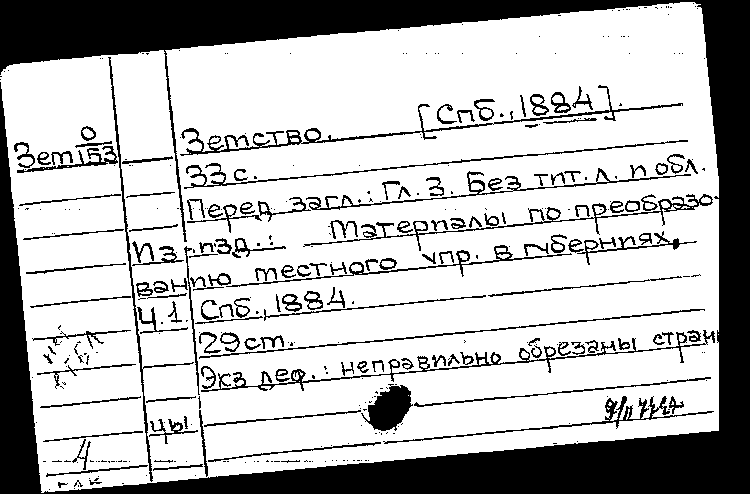 0
Зет 153 Земство. [Спб., 1884].
33 с.
Перед загл.: Гл. 3. Без тит. л. и обл.
Из изд.: Материалы по преобразо-
ванию местного упр. в губерниях,
Ч.1 Спб., 1884.
29 cm.
Экз деф.: неправильно обрезаны страни
цы
4